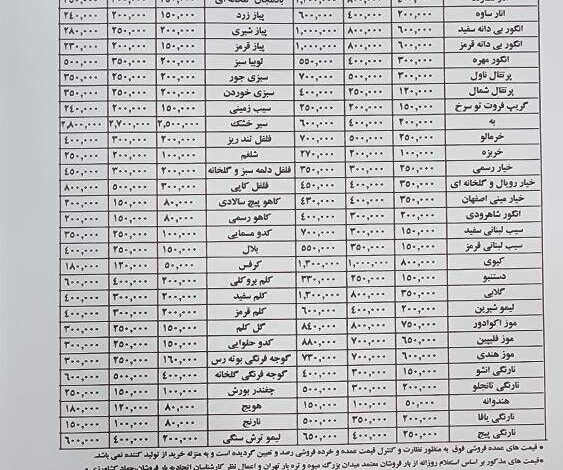 انار ساوه ۲۰۰,۰۰۰ ۴۰۰,۰۰۰ ۶۰۰,۰۰۰ پیاز زرد ۱۵۰,۰۰۰ ۲۰۰,۰۰۰ ۲۴۰,۰۰۰
انگور بی دانه سفید ۶۰۰,۰۰۰ ۸۰۰,۰۰۰ ۱,۰۰۰,۰۰۰ پیاز شیری ۲۰۰,۰۰۰ ۲۵۰,۰۰۰ ۲۸۰,۰۰۰
انگور بی دانه قرمز ۶۰۰,۰۰۰ ۸۰۰,۰۰۰ ۱,۰۰۰,۰۰۰ پیاز قرمز ۱۵۰,۰۰۰ ۲۰۰,۰۰۰ ۲۵۰,۰۰۰
انگور مهره ۳۰۰,۰۰۰ ۴۰۰,۰۰۰ ۵۵۰,۰۰۰ لوبیا سبز ۲۰۰,۰۰۰ ۳۵۰,۰۰۰ ۵۰۰,۰۰۰
پرتقال ناول ۳۰۰,۰۰۰ ۵۰۰,۰۰۰ ۷۰۰,۰۰۰ سبزی جور ۱۵۰,۰۰۰ ۲۰۰,۰۰۰ ۳۵۰,۰۰۰
پرتقال شمال ۱۲۰,۰۰۰ ۲۵۰,۰۰۰ ۴۰۰,۰۰۰ سبزی خوردن ۲۰۰,۰۰۰ ۲۵۰,۰۰۰ ۳۵۰,۰۰۰
گریپ فروت تو سرخ ۱۵۰,۰۰۰ ۲۰۰,۰۰۰ ۲۵۰,۰۰۰ سیب زمینی ۱۵۰,۰۰۰ ۲۰۰,۰۰۰ ۲۴۰,۰۰۰
به ۲۰۰,۰۰۰ ۴۰۰,۰۰۰ ۶۰۰,۰۰۰ سیر خشک ۲,۵۰۰,۰۰۰ ۲,۷۰۰,۰۰۰ ۲,۸۰۰,۰۰۰
خرمالو ۲۵۰,۰۰۰ ۵۰۰,۰۰۰ ۷۰۰,۰۰۰ فلفل تند ریز ۲۰۰,۰۰۰ ۳۰۰,۰۰۰ ۴۰۰,۰۰۰
خربزه ۱۰۰,۰۰۰ ۲۰۰,۰۰۰ ۲۷۰,۰۰۰ شلغم ۱۰۰,۰۰۰ ۲۰۰,۰۰۰ ۲۵۰,۰۰۰
خیار رسمی ۲۵۰,۰۰۰ ۳۰۰,۰۰۰ ۳۵۰,۰۰۰ فلفل دلمه سبز و گلخانه ۲۰۰,۰۰۰ ۳۰۰,۰۰۰ ۴۵۰,۰۰۰
خیار رویال و گلخانه ای ۳۵۰,۰۰۰ ۴۰۰,۰۰۰ ۴۵۰,۰۰۰ فلفل کاپی ۳۰۰,۰۰۰ ۵۰۰,۰۰۰ ۸۰۰,۰۰۰
خیار مینی اصفهان ۳۵۰,۰۰۰ ۴۰۰,۰۰۰ ۴۳۰,۰۰۰ کاهو پیچ سالادی ۸۰,۰۰۰ ۱۵۰,۰۰۰ ۲۰۰,۰۰۰
انگور شاهرودی ۲۰۰,۰۰۰ ۳۰۰,۰۰۰ ۴۰۰,۰۰۰ کاهو رسمی ۸۰,۰۰۰ ۱۵۰,۰۰۰ ۲۰۰,۰۰۰
سیب لبنانی سفید ۱۵۰,۰۰۰ ۳۰۰,۰۰۰ ۷۰۰,۰۰۰ کدو مسمایی ۱۰۰,۰۰۰ ۲۵۰,۰۰۰ ۳۵۰,۰۰۰
سیب لبنانی قرمز ۱۵۰,۰۰۰ ۳۵۰,۰۰۰ ۵۵۰,۰۰۰ بلال ۱۵۰,۰۰۰ ۲۰۰,۰۰۰ ۲۵۰,۰۰۰
کیوی ۸۰۰,۰۰۰ ۱,۰۰۰,۰۰۰ ۱,۳۰۰,۰۰۰ کرفس ۵۰,۰۰۰ ۱۲۰,۰۰۰ ۱۸۰,۰۰۰
دستنبو ۱۵۰,۰۰۰ ۲۵۰,۰۰۰ ۳۳۰,۰۰۰ کلم بروکلی ۲۰۰,۰۰۰ ۴۰۰,۰۰۰ ۶۰۰,۰۰۰
گلابی ۳۵۰,۰۰۰ ۸۰۰,۰۰۰ ۱,۳۰۰,۰۰۰ کلم سفید ۲۰۰,۰۰۰ ۳۰۰,۰۰۰ ۴۰۰,۰۰۰
لیمو شیرین ۲۰۰,۰۰۰ ۴۰۰,۰۰۰ ۶۰۰,۰۰۰ کلم قرمز ۲۰۰,۰۰۰ ۳۰۰,۰۰۰ ۴۰۰,۰۰۰
موز اکوادور ۷۵۰,۰۰۰ ۸۰۰,۰۰۰ ۸۴۰,۰۰۰ گل کلم ۱۵۰,۰۰۰ ۲۵۰,۰۰۰ ۳۰۰,۰۰۰
موز فلیپین ۶۵۰,۰۰۰ ۷۰۰,۰۰۰ ۸۸۰,۰۰۰ کدو حلوایی ۱۵۰,۰۰۰ ۲۰۰,۰۰۰ ۳۰۰,۰۰۰
موز هندی ۶۰۰,۰۰۰ ۷۰۰,۰۰۰ ۷۳۰,۰۰۰ گوجه فرنگی بوته رس ۱۶۰,۰۰۰ ۲۵۰,۰۰۰ ۳۰۰,۰۰۰
نارنگی انشو ۱۵۰,۰۰۰ ۳۰۰,۰۰۰ ۴۰۰,۰۰۰ گوجه فرنگی گلخانه ۴۰۰,۰۰۰ ۵۰۰,۰۰۰ ۶۰۰,۰۰۰
نارنگی تانجلو ۲۰۰,۰۰۰ ۳۰۰,۰۰۰ ۵۰۰,۰۰۰ چغندر بورش ۱۰۰,۰۰۰ ۱۵۰,۰۰۰ ۲۵۰,۰۰۰
هندوانه ۵۰,۰۰۰ ۱۰۰,۰۰۰ ۱۵۰,۰۰۰ هویج ۸۰,۰۰۰ ۱۲۰,۰۰۰ ۱۸۰,۰۰۰
نارنگی یافا ۲۰۰,۰۰۰ ۴۰۰,۰۰۰ ۵۰۰,۰۰۰ نارنج ۸۰,۰۰۰ ۱۰۰,۰۰۰ ۱۵۰,۰۰۰
نارنگی پیج ۲۵۰,۰۰۰ ۴۰۰,۰۰۰ ۶۵۰,۰۰۰ لیمو ترش سنگی ۲۰۰,۰۰۰ ۴۰۰,۰۰۰ ۶۰۰,۰۰۰
* قیمت های عمده فروشی فوق به منظور نظارت و کنترل قیمت عمده و خرده فروشی رصد و تعیین گردیده است و به منزله خرید از تولید کننده نمی باشد.
*قیمت های مذکور بر اساس استعلام روزانه از بار فروشان معتمد میدان بزرگ میوه و تره بار تهران و اعمال نظر کارشناسان اتحادیه بار فروشان،جهاد کشاورزی و